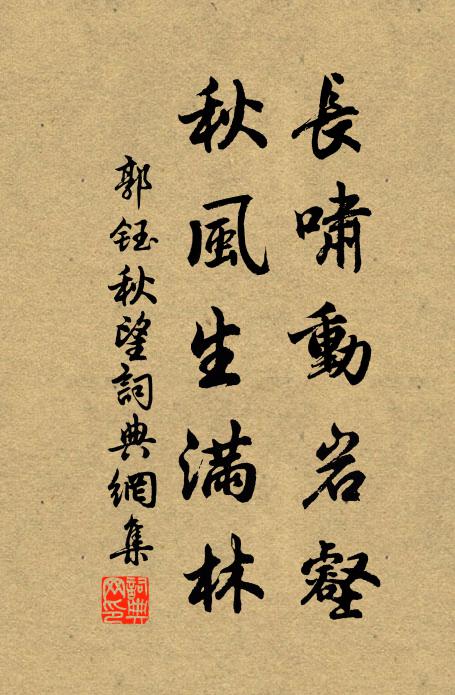 長嘯動岩壑
秋風生滿林
郭鈺秋望詞典網集
詞典網印